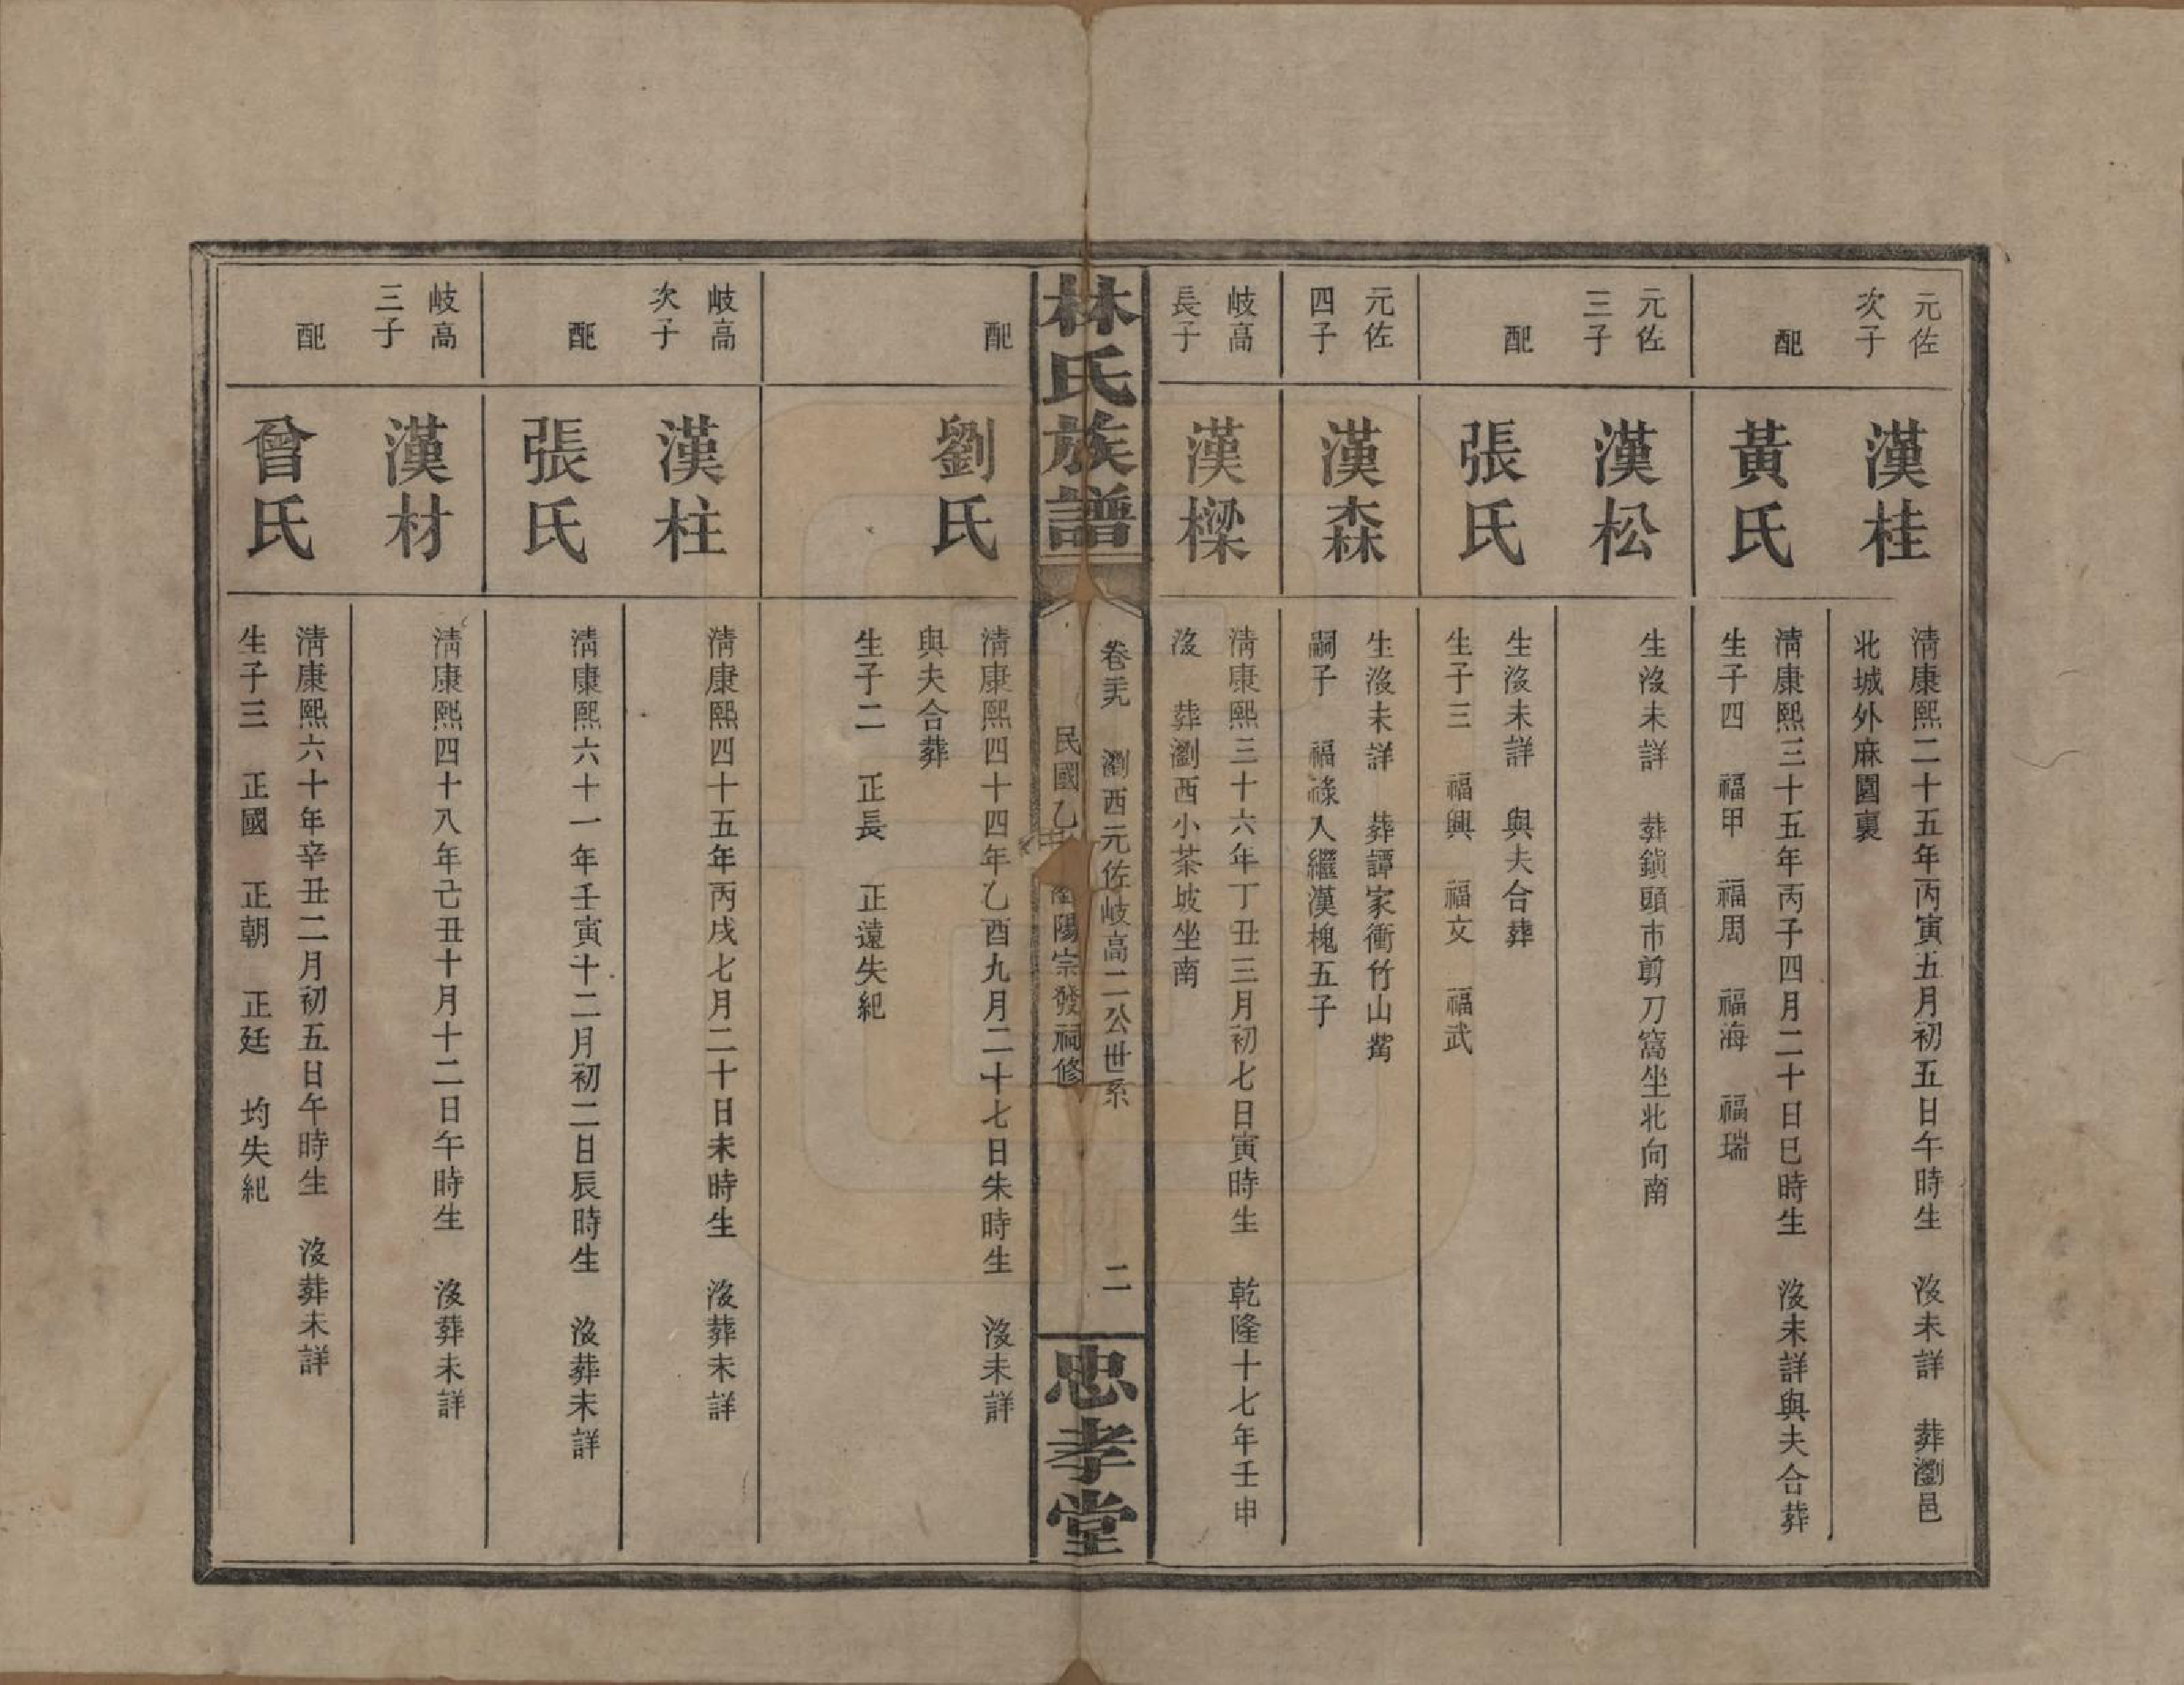 元佐
次子
漢桂
清康熙二十五年丙寅五月初五日午時生 沒未詳 葬瀏邑
北城外麻園裏
配
黃氏
清康熙三十五年丙子四月二十日巳時生 沒未詳與夫合葬
生子四 福甲 福周 福海 福瑞
元佐
三子
漢松
生沒未詳 葬鎖頭市剪刀窩坐北向南
配
張氏
生沒未詳 與夫合葬
生子三 福興 福文 福武
元佐
四子
漢森
生沒未詳 葬譚家衝竹山觜
嗣子 福祿入繼漢槐五子
岐高
長子
漢樑
清康熙三十六年丁丑三月初七日寅時生 乾隆十七年壬申
沒 葬瀏西小茶坡坐南
林氏族譜
卷三九 瀏西元佐岐高二公世系 二
民國乙 瀏陽宗發祠修
忠孝堂
配
劉氏
清康熙四十四年乙酉九月二十七日朱時生 沒未詳
與夫合葬
生子二 正長 正遠失紀
岐高
次子
漢柱
清康熙四十五年丙戌七月二十日未時生 沒葬未詳
配
張氏
清康熙六十一年壬寅十二月初二日辰時生 沒葬未詳
岐高
三子
漢材
清康熙四十八年己丑十月十二日午時生 沒葬未詳
配
曾氏
清康熙六十年辛丑二月初五日午時生 沒葬未詳
生子三 正國 正朝 正廷 均失紀